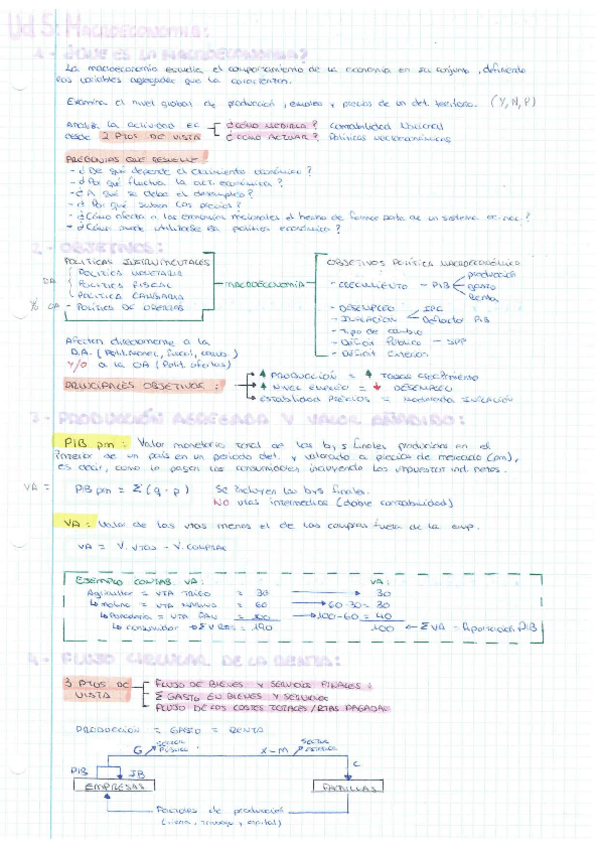 Ud 5: MACROECONOMIA:
1 - ¿QUE ES LA MACROECONOMIA?
La macroeconomia estudia el comportamiento de la economia en su conjunto, definiendo
las variables agregadas que la caracterizan.
Examina el nivel global de producción, empleo y precios de un det. territorio. (Y, N, P)
Analizar la actividad ec
desde 2 PTOS DE VISTA
¿CÓMO MEDIRLA? Contabilidad Nacional
¿CÓMO ACTUAR? Políticas macroeconómicas
PREGUNTAS QUE RESUELVE
- ¿De qué depende el crecimiento económico?
- ¿Por qué fluctua la act. económica?
- ¿A qué se debe el desempleo?
- ¿Por qué suben los precios?
- ¿Cómo afecta a las economías nacionales el hecho de formar parte de un sistema
- ¿Cómo puede utilizarse la política económica?
2 - OBJETIVOS:
POLITICAS INSTRUMENTALES
DA
POLITICA MONETARIA
POLITICA FISCAL
POLITICA CAMBIARIA
OA - POLITICA DE OFERTAS
MACROECONOMIA
OBJETIVOS POLÍTICA MACROECONÓMICA
- CRECIMIENTO - PIB
producción
gasto
renta
- DESEMPLEO
- INFLACIÓN
IPC
Deflactor PIB
- Tipo de cambio
- Déficit Público - SPP
- Déficit Exterior
Afectan directamente a la
D.A. (Polit. monet., fiscal, camb.)
Y/O a la OA (Polit. ofertas)
PRINCIPALES OBJETIVOS:
↑ PRODUCCIÓN = ↑ TASAS CRECIMIENTO
↑ NIVEL EMPLEO = ↓ DESEMPLEO
Estabilidad PRECIOS = moderada INFLACIÓN
3 - PRODUCCIÓN AGREGADA Y VALOR AÑADIDO:
PIB pm: Valor monetario total de los b y s finales producidos en el
interior de un país en un periodo det. y valorado a precios de mercado (pm),
es decir, como lo pagan los consumidores incluyendo los impuestos ind. netos.
VA =
PIB pm = Σ (q · p)
Se incluyen los bys finales.
NO vtas intermedias (doble contabilidad)
VA: Valor de las vtas menos el de las compras fuera de la emp.
VA = V. VTAS - V. COMPRAS
EJEMPLO CONTAB. VA:
VA:
Agricultor = VTA TRIGO = 30 → 30
↳ molino = VTA HARINA = 60 → 60-30 = 30
↳ Panadería = VTA PAN = 100 → 100-60 = 40
↳ consumidor → = 190
100 ← Σ VA - Aportación PIB
4 - FLUJO CIRCULAR DE LA RENTA:
3 PTOS DE
VISTA
FLUJO DE BIENES Y SERVICIOS FINALES
Σ GASTO EN BIENES Y SERVICIOS
FLUJO DE LOS COSTES TOTALES / RTAS PAGADAS
PRODUCCIÓN = GASTO = RENTA
G
SECTOR
PÚBLICO
X-M
SECTOR
EXTERIOR
C
PIB
IB
EMPRESAS
FAMILIAS
Factores de producción
(tierra, trabajo y capital)